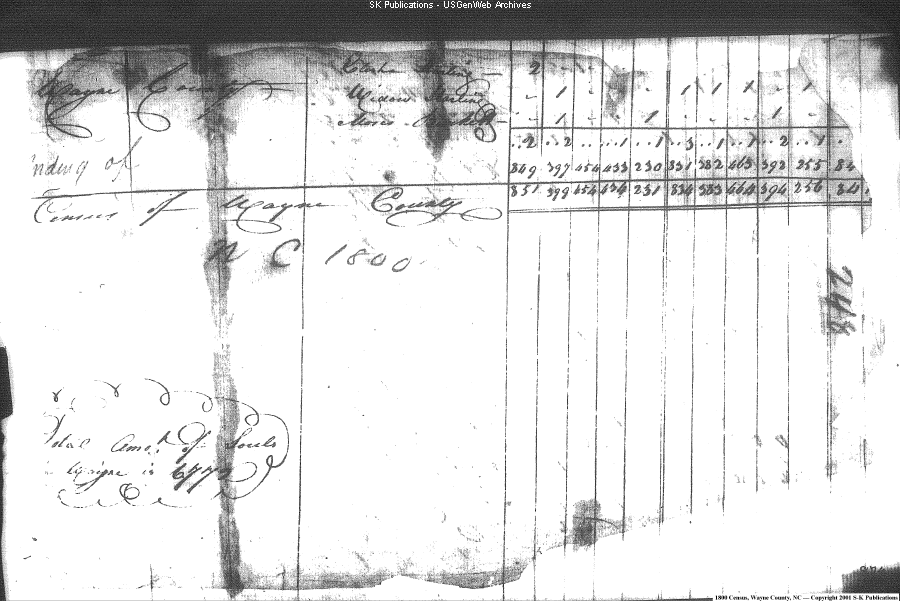 SK Publications - USGenWeb Archives
2
Wayne County 1 1 1 1 1
Widow
Moses 1 1 1
2 2 1 1 3 1 1 2 1
nding of 849 397 454 433 230 831 382 463 392 255 84
851 399 454 434 231 834 383 464 394 256 84
Census of Wayne County
N C 1800
248
Total Amot. of Souls
Wayne is 6772
1800 Census, Wayne County, NC — Copyright 2001 S-K Publications